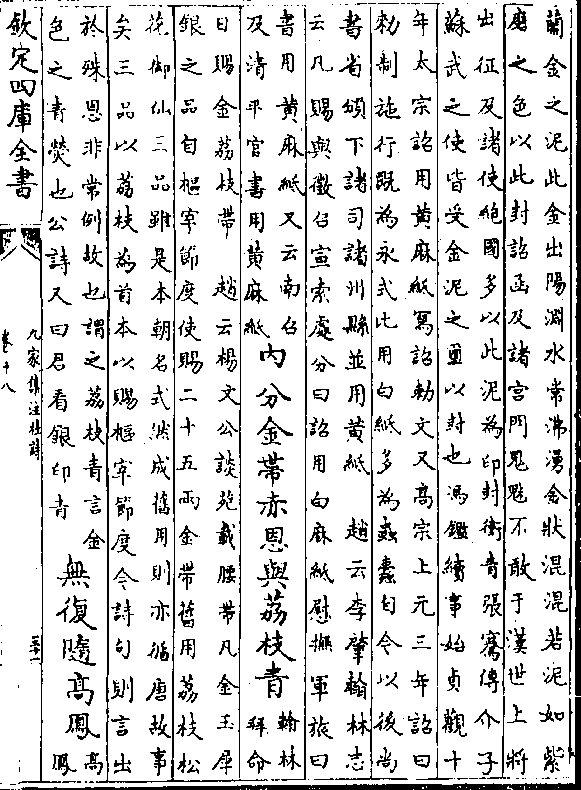 蘭金之泥此金出陽淵水常沸湧金狀混混若泥如紫
磨之色以此封詔函及諸宮門鬼魅不敢干漢世上將
出征及諸使絶國多以此泥為印封衛青張騫傅介子
蘇武之使皆受金泥之璽以封也馮鑑續事始貞觀十
年太宗詔用黃麻紙寫詔勅文又高宗上元三年詔曰
勅制施行既為永式比用白紙多為蟲蠹自今以後尚
書省頒下諸司諸州縣並用黃紙　趙云李肇翰林志
云凡賜與徵召宣索處分曰詔用白麻紙慰撫軍旅曰
書用黃麻紙又云南召
及清平官書用黃麻紙
內分金帶赤恩與荔枝青
翰林
拜命
日賜金荔枝帶　趙云楊文公談苑載腰帶凡金玉犀
銀之品自樞宰節度使賜二十五兩金帶舊用荔枝松
花御仙三品雖是本朝名式然成舊用則亦循唐故事
矣三品以荔枝為首本以賜樞宰節度今詩句則言出
於殊恩非常例故也謂之荔枝青言金
色之青熒也公詩又曰君看銀印青
無復隨高鳳
高
鳳
欽定四庫全書
九家集注杜詩
卷十八
三十一